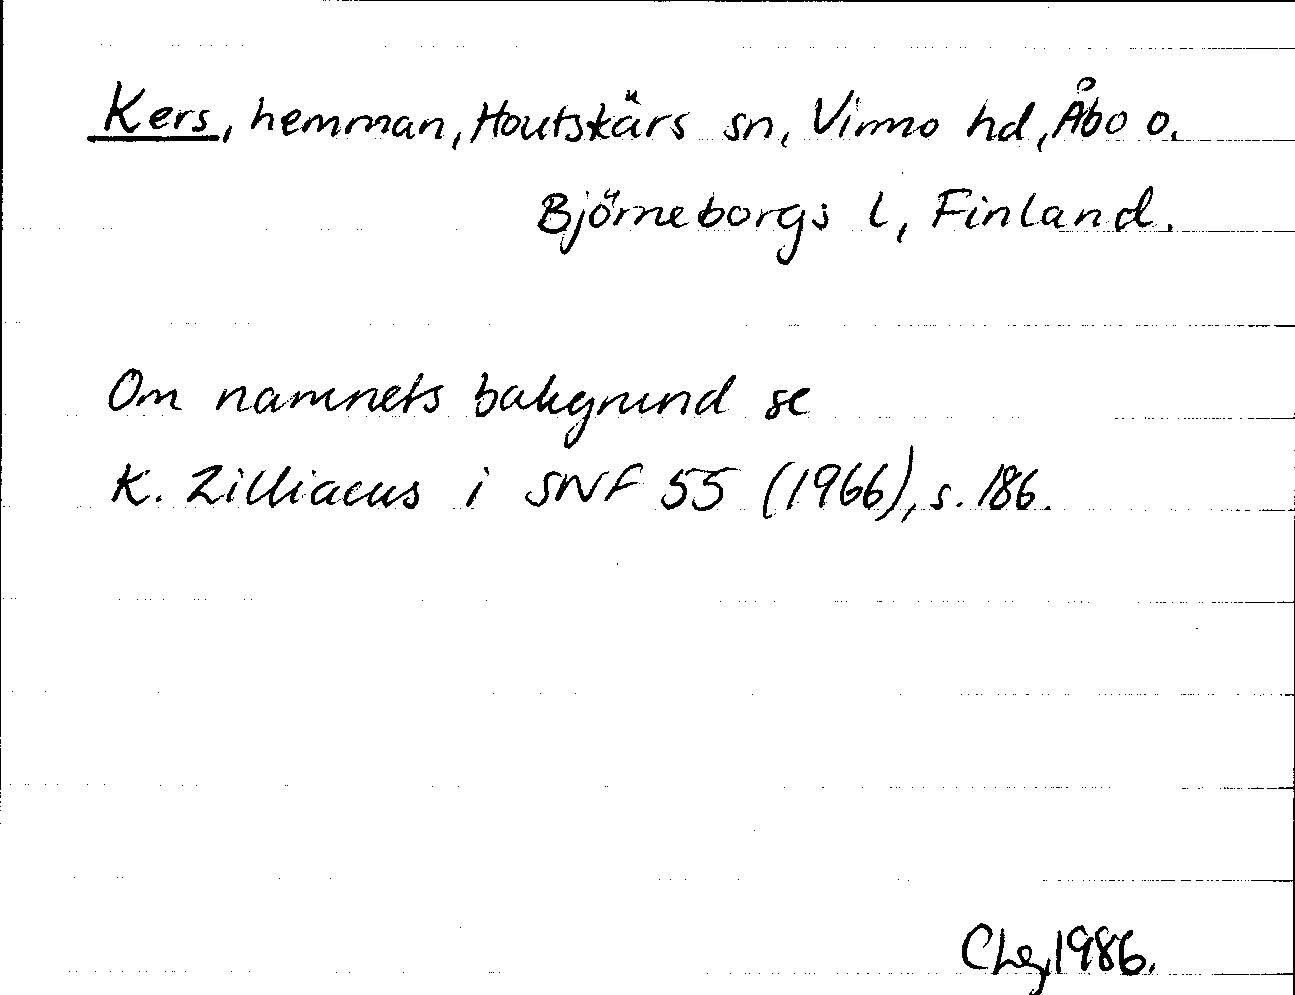 Kers, hemman, Houtskärs sn, Virmo hd, Åbo o.
Björneborgs l, Finland.
Om namnets bakgrund se
K. Zilliacus i SNF 55 (1966), s. 186.
1986.